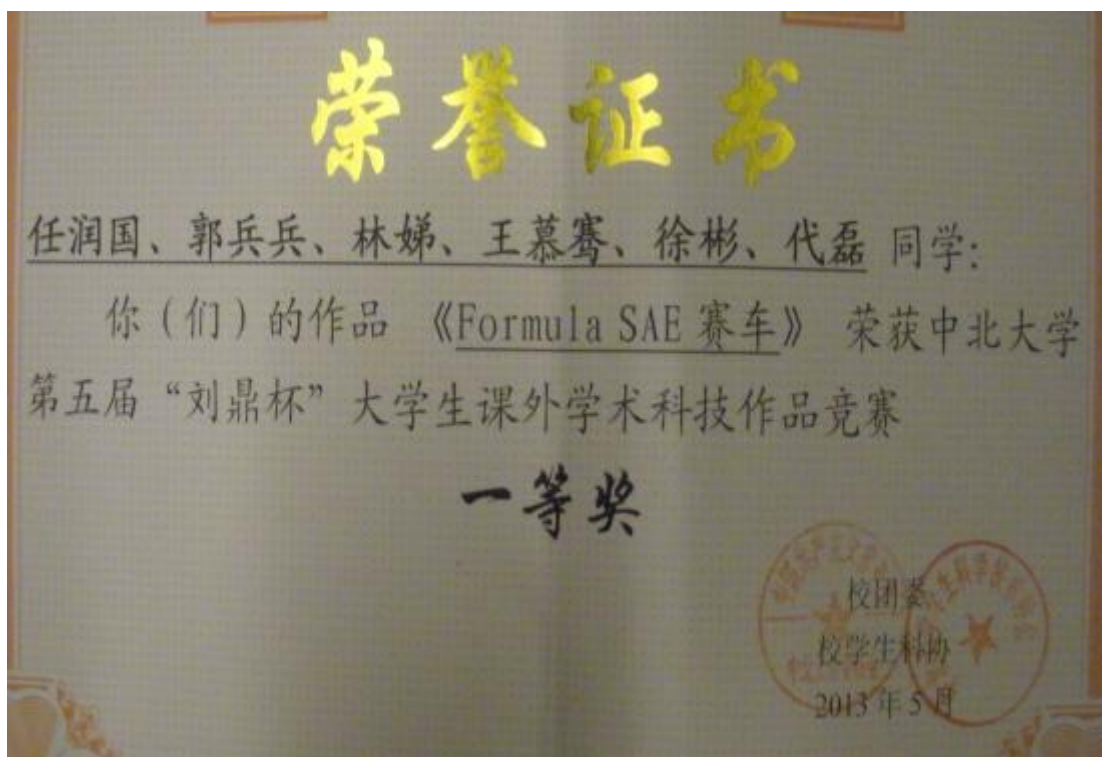 荣誉证书
任润国、郭兵兵、林娣、王慕骞、徐彬、代磊 同学:
你（们）的作品 《Formula SAE 赛车》 荣获中北大学
第五届 “刘鼎杯” 大学生课外学术科技作品竞赛
一等奖
校团委
校学生科协
2013 年 5 月